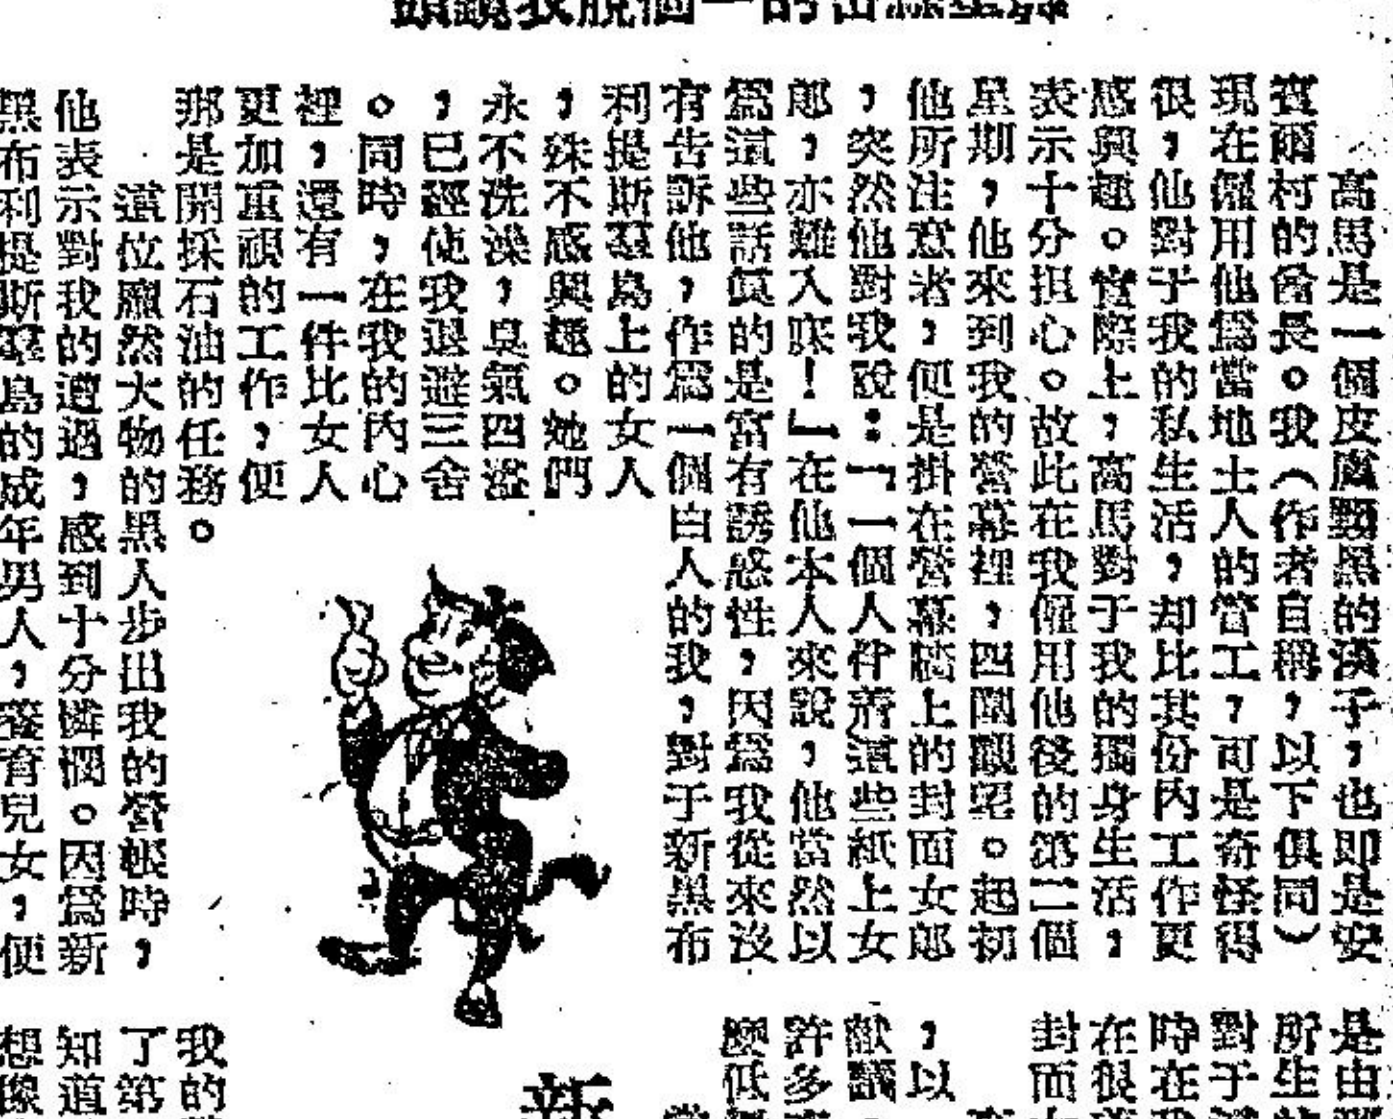 高馬是一個皮膚黝黑的漢子，也即是安
賓爾柯的酋長。我（作者自稱，以下俱同）
現在僱用他爲當地土人的管工，可是奇怪得
很，他對于我的私生活，却比其份內工作更
感興趣。實際上，高馬對于我的獨身生活，
表示十分担心。故此在我僱用他後的第二個
星期，他來到我的營幕裡，四圍觀望。起初
他所注意者，便是掛在營幕牆上的封面女郎
，突然他對我說：「一個人伴着這些紙上女
郎，亦難入寐！」在他本人來說，他當然以
爲這些話眞的是富有誘惑性，因爲我從來沒
有告訴他，作爲一個白人的我，對于新黑布
利提斯羣島上的女人
，殊不感興趣。她們
永不洗澡，臭氣四溢
，已經使我退避三舍
。同時，在我的內心
裡，還有一件比女人
更加重視的工作，便
那是開採石油的任務。
這位龐然大物的黑人步出我的營帳時，
他表示對我的遭遇，感到十分憐憫。因爲新
黑布利提斯羣島的成年男人，養育兒女，便
是由
所生
對于
時在
在很
封面
，以
獻議
許多
麼低
新
我的
了第
知道
想像